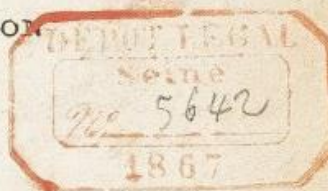 ON
DÉPÔT LEGAL
Seine
No 5642
1867